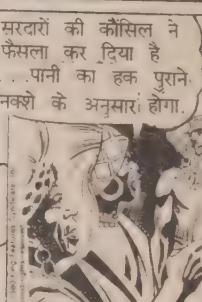 सरदारों की कौंसिल ने
फैसला कर दिया है
...पानी का हक पुराने
नक्शे के अनुसार होगा.